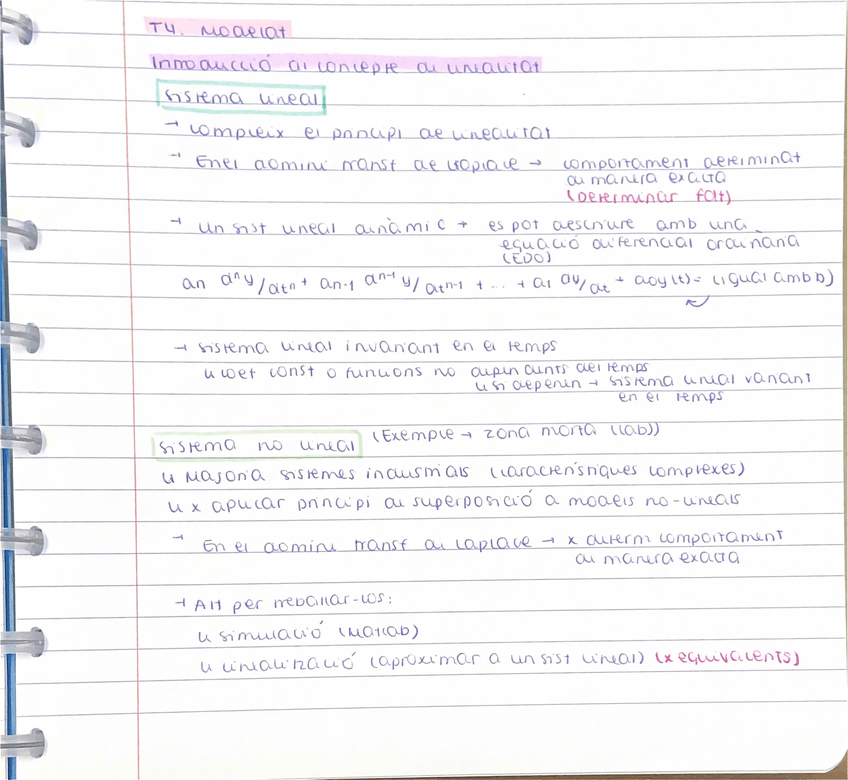 T4. Modelat
Introducció al concepte de linealitat
Sistema lineal
→ Compleix el principi de linealitat
→ En el domini transf de Laplace → comportament determinat
de manera exacta
(Determinar fdt)
→ Un sist lineal dinàmic → es pot descriure amb una
equació diferencial ordinària
(EDO)
an dⁿy/dtⁿ + an-1 dⁿ⁻¹y/dtⁿ⁻¹ + ... + a1 dy/dt + a0y(t) = (igual amb b)
→ Sistema lineal invariant en el temps
↳ coef const o funcions no dependents del temps
↳ si depenen → sistema lineal variant
en el temps
Sistema no lineal (Exemple → zona morta (lab))
↳ Majoria sistemes industrials (característiques complexes)
↳ x aplicar principi de superposició a models no-lineals
→ En el domini transf de Laplace → x determ comportament
de manera exacta
→ Alt per treballar-los:
↳ simulació (Matlab)
↳ linealització (aproximar a un sist lineal) (x equivalents)